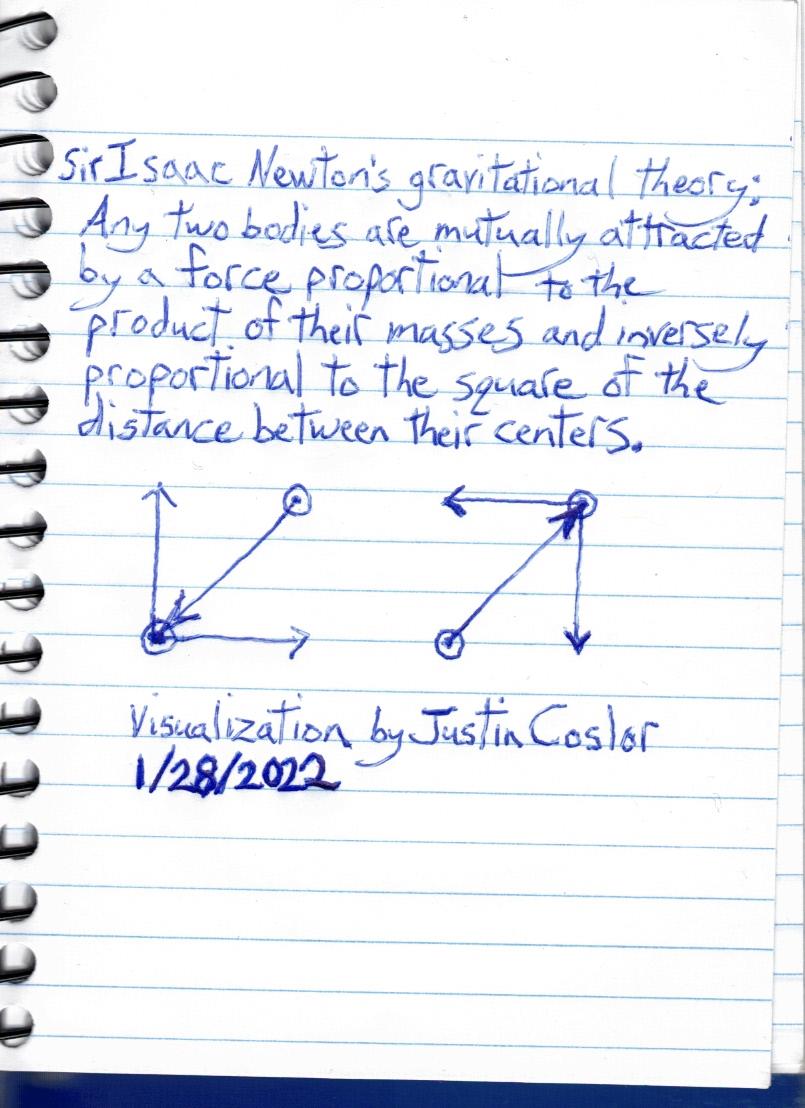 Sir Isaac Newton's gravitational theory:
Any two bodies are mutually attracted
by a force proportional to the
product of their masses and inversely
proportional to the square of the
distance between their centers.
Visualization by Justin Coslor
1/28/2022